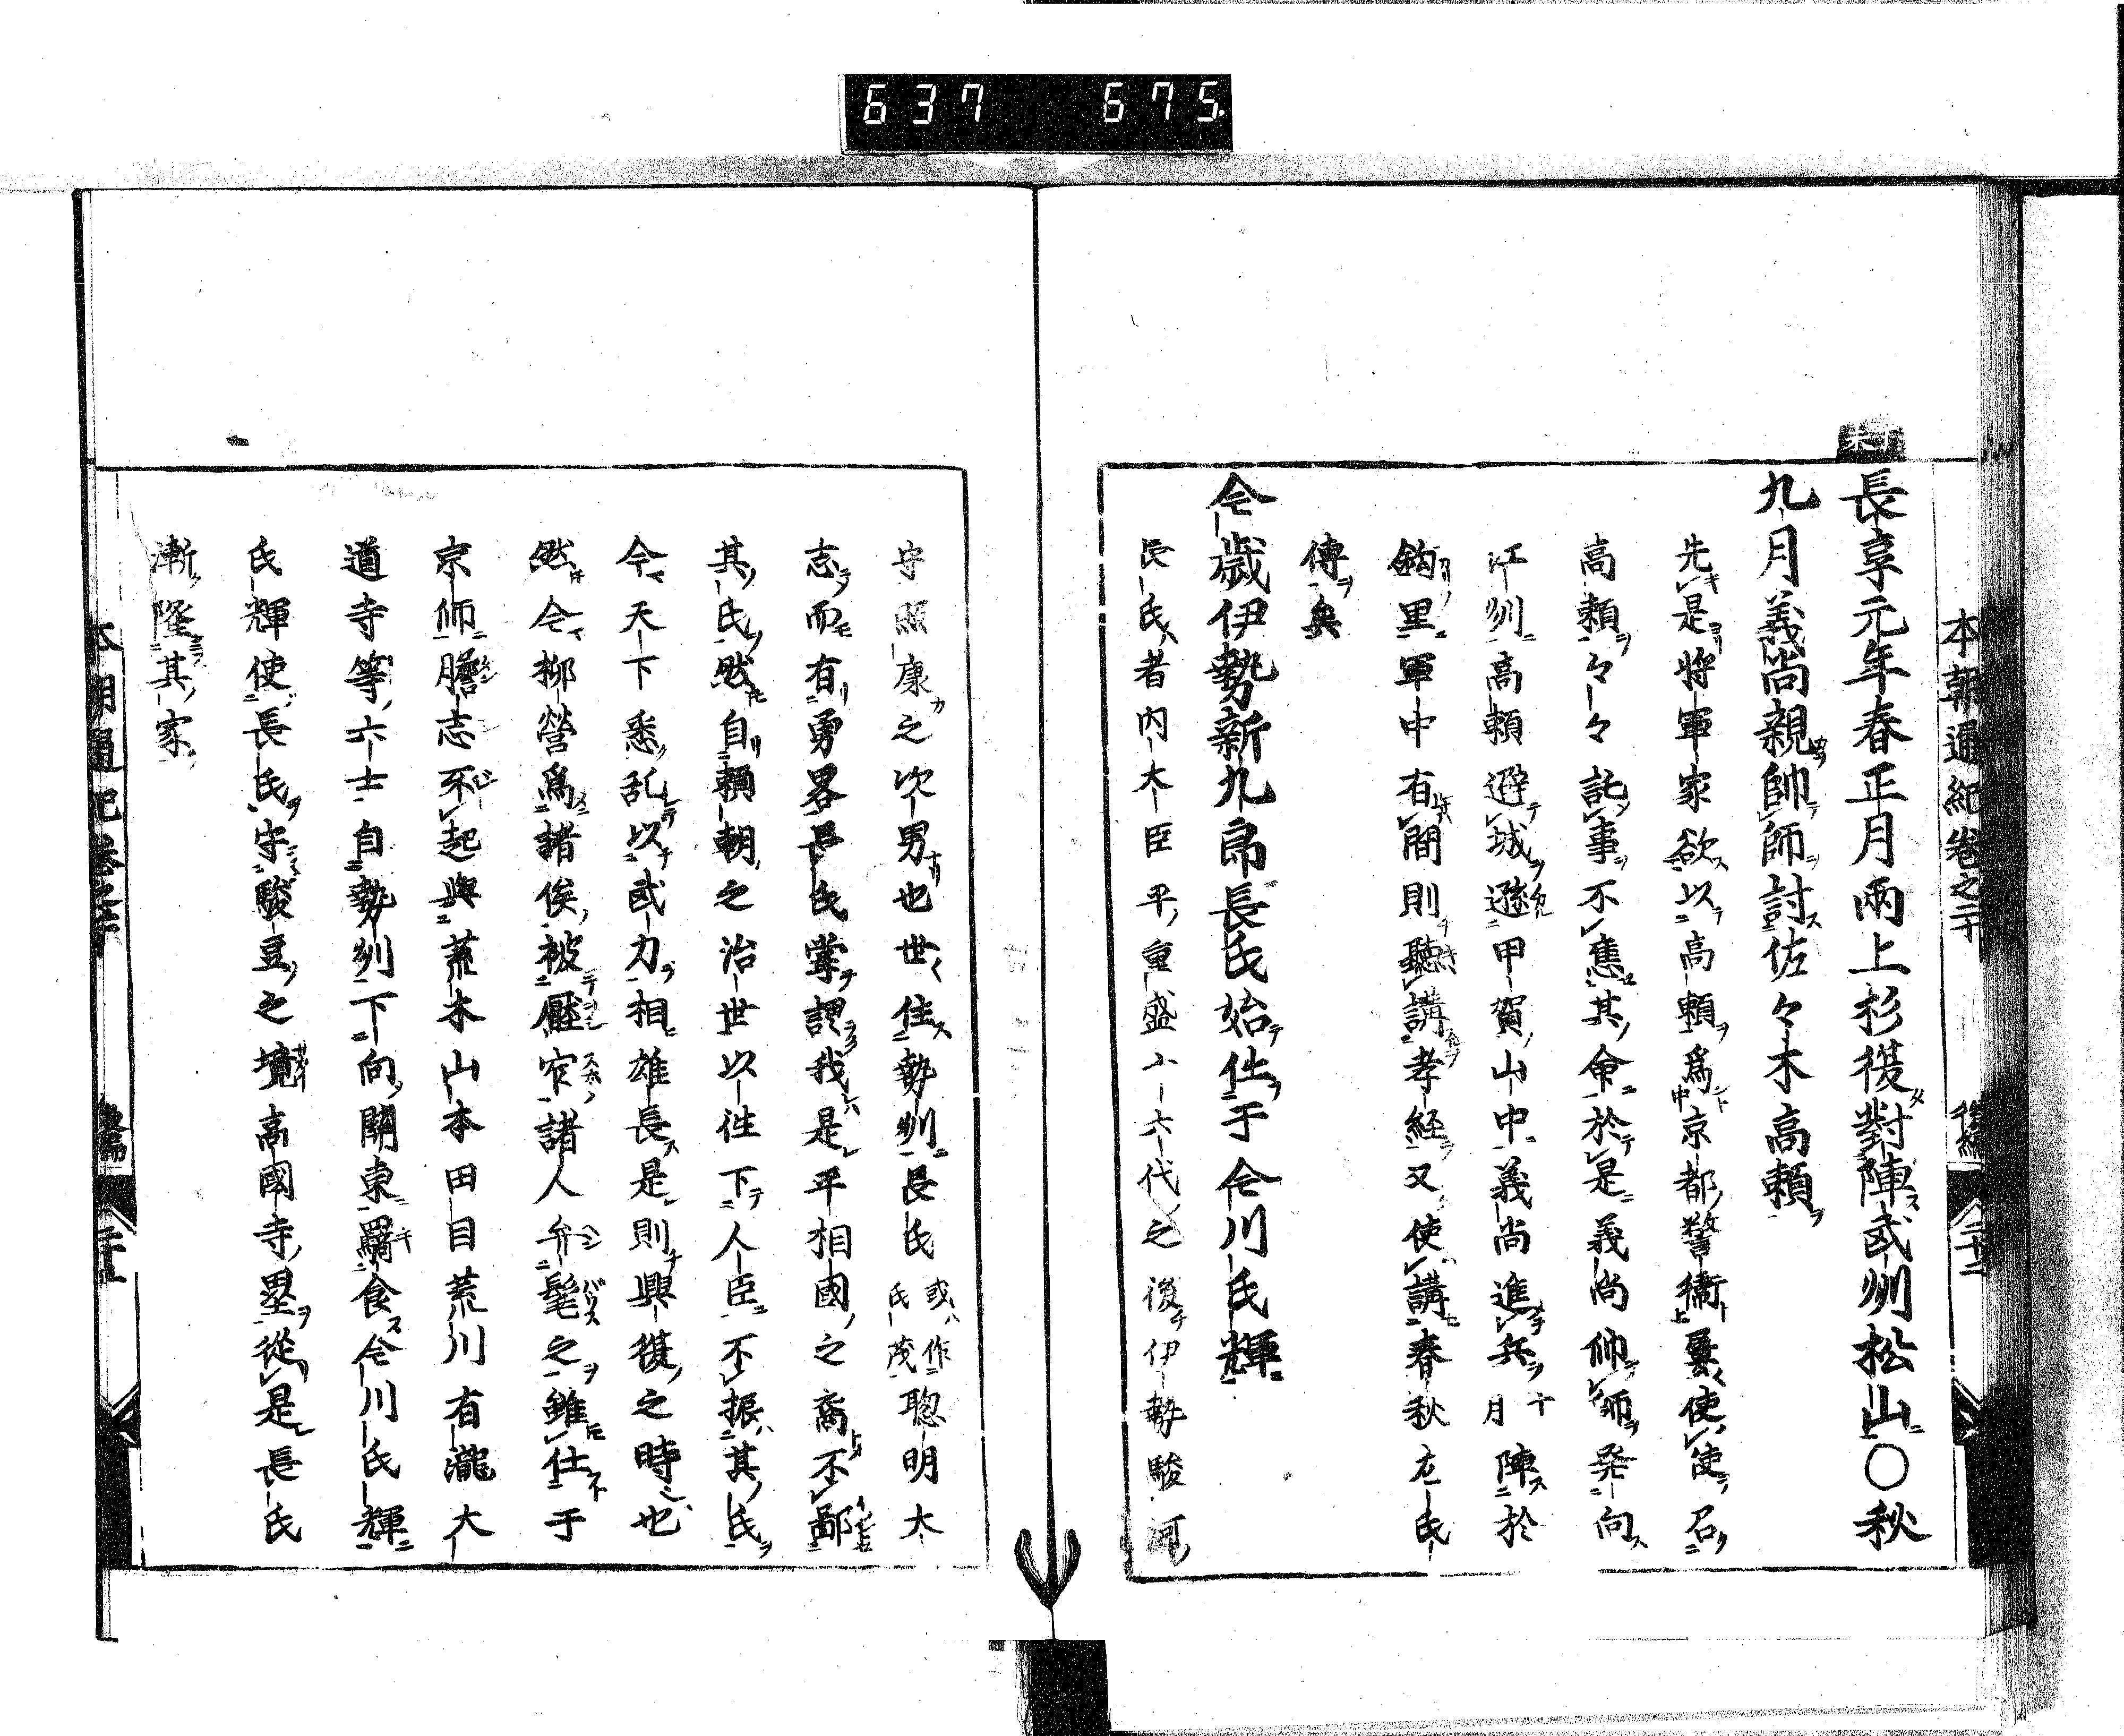 637 675
本朝通紀卷之二十 後編 二十二
長享元年春正月兩上杉復對陣武州松山〇秋
九月義尚親帥師討佐々木高頼
先是將軍家欲以高頼爲京都警衞屢使使召
高頼々々託事不應其命於是義尚帥師発向
江州高頼避城遯甲賀山中義尚進兵十月陣於
鈎里軍中有間則聽講孝経又使講春秋左氏
傳矣
今歳伊勢新九郎長氏始仕于今川氏輝
長氏者内大臣平重盛十六代之後伊勢駿河
守照康之次男也世住勢州長氏或作氏茂聰明大
志而有勇畧長氏掌謂我是平相國之裔不鄙
其氏然自頼朝之治世以往下人臣不振其氏
今天下悉乱以武力相雄長是則興復之時也
然今柳營爲諸侯被壓穽諸人弁髦之雖仕于
京師膽志不起與荒木山本田目荒川有瀧大
道寺等六士自勢州下向關東羈食今川氏輝
氏輝使長氏守駿豆之境高國寺塁從是長氏
漸隆其家
本朝通紀卷之二十 後編